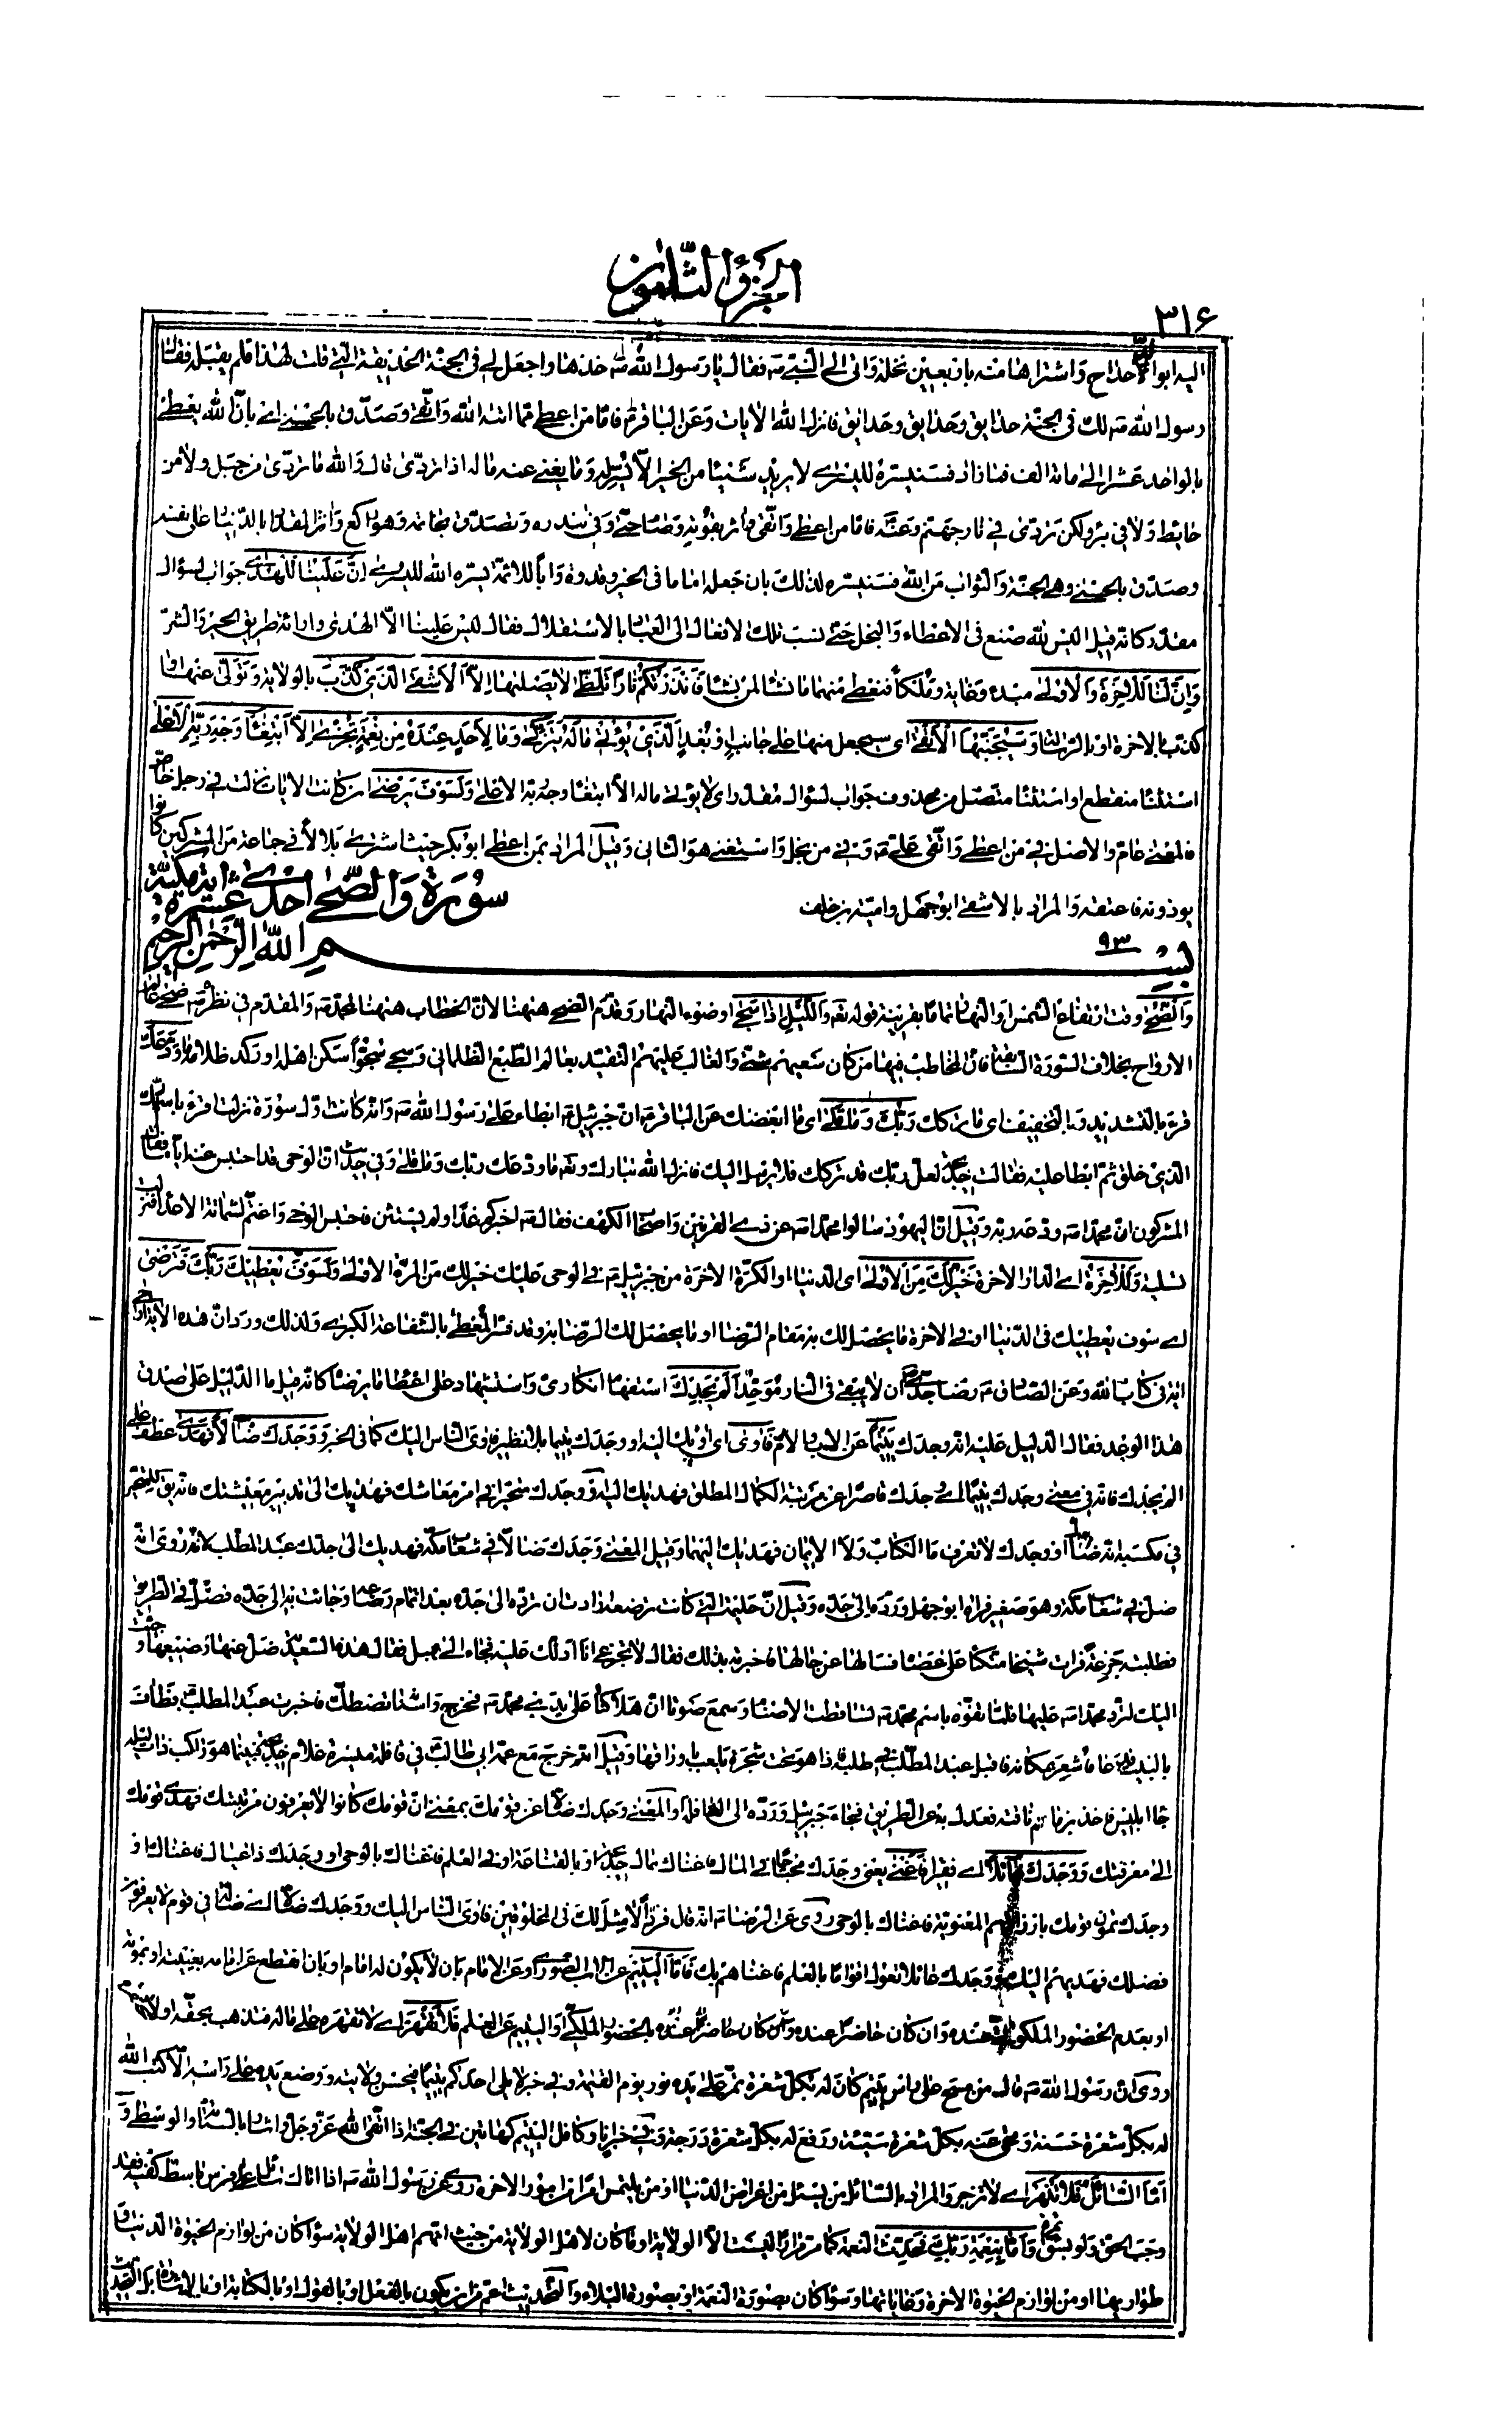 الجزؤ الثلثون
٣١٤
اليه ابو الدحداح واشتراها منه باربعين نخلة واتى الى النبى ص فقال يا رسول الله ص خذها واجعل لى فى الجنة الحديقة التى قلت لهذا فلم يقبله فقال
رسول الله ص لك فى الجنة حدائق وحدائق وحدائق فانزل الله الايات وعن الباقر ع فاما من اعطى مما اتيه الله واتقى وصدق بالحسنى اى بان الله يعطى
بالواحد عشرا الى مائة الف فما زاد فسنيسره لليسرى لا يريد شيئا من الخير الا يسر له وما يغنى عنه ماله اذا تردى قال والله ما تردى من جبل ولا من
حايط ولا فى بئر ولكن تردى فى نار جهنم وعنه فاما من اعطى واتقى واثر بقوته وصام حتى وفى بنذره وتصدق بخاتمه وهو راكع واثر المقداد بالدينار على نفسه
وصدق بالحسنى وهى الجنة والثواب من الله فسنيسره لذلك بان جعله اماما فى الخير وقدوة وابا للائمة يسره الله لليسرى ان علينا للهدى جواب لسؤال
مقدر كانه قيل اليس لله صنع فى الاعطاء والبخل حتى نسب تلك الافعال الى العباد بالاستقلال فقال ليس علينا الا الهدى وارائة طريق الخير والشر
وان لنا للاخرة والاولى مبدء وغاية وملكا فنعطى منهما ما نشاء لمن نشاء فانذرتكم نارا تلظى لا يصليها الا الاشقى الذى كذب بالولاية وتولى عنها او
كذب بالاخرة او بالرسالة وسيجنبها الاتقى اى سيجعل منها على جانب وبعد الذى يؤتى ماله يتزكى وما لاحد عنده من نعمة تجزى الا ابتغاء وجه ربه الاعلى
استثناء منقطع او استثناء متصل من محذوف جواب لسؤال مقدر اى لا يؤتى ماله الا ابتغاء وجه ربه الاعلى ولسوف يرضى ان كانت الايات نزلت فى رجل خاص
فالمعنى عام والاصل فى من اعطى واتقى على ع وفى من بخل واستغنى هو الثانى وقيل المراد بمن اعطى ابو بكر حيث اشترى بلالا فى جماعة من المشركين كانوا
يوذونه فاعتقه والمراد بالاشقى ابو جهل وامية بن خلف
سورة والضحى احدى عشرة اية مكية
٩٣
بسم الله الرحمن الرحيم
والضحى وقت ارتفاع الشمس او النهار تماما بقرينة قوله تعه والليل اذا سجى او ضوء النهار وقدم الضحى ههنا لان الخطاب ههنا لمحمد ص والمقدم فى نظره ص ضحى عالم
الارواح بخلاف السورة السابقة فان المخاطب فيها من كان سعيهم شتى والغالب عليهم التقيد بعالم الطبع الظلمانى وسجى سجوا سكن اهله او ركد ظلامه ما ودعك
قرء بالتشديد وبالتخفيف اى ما تركك ربك وما قلى اى ما ابغضك عن الباقر ع ان جبرئيل ع ابطاء على رسول الله ص وانه كانت اول سورة نزلت اقرء باسم ربك
الذى خلق ثم ابطا عليه فقالت خديجة لعل ربك قد تركك فلا يرسل اليك فانزل الله تبارك وتعه ما ودعك ربك وما قلى وفى حديث ان الوحى قد احتبس عنه اياما فقال
المشركون ان محمدا ص ودعه ربه وقيل ان اليهود سالوا محمدا ص عن ذى القرنين واصحاب الكهف فقال ص اخبركم غدا ولم يستثن فاحتبس الوحى واغتم لشماتة الاعداء فنزلت
تسلية وللاخرة اى الدار الاخرة خير لك من الاولى اى الدنيا او الكرة الاخرة من جبرئيل ع فى الوحى عليك خير لك من المرة الاولى ولسوف يعطيك ربك فترضى
اى سوف يعطيك فى الدنيا او فى الاخرة ما يحصل لك به مقام الرضا او ما يحصل لك الرضا به وقد فسر المعطى بالشفاعة الكبرى ولذلك ورد ان هذه الاية ارجى
اية فى كتاب الله وعن الصادق ع رضا جدى ان لا يبقى فى النار موحد الم يجدك استفهام انكارى واستشهاد على اعطائه ما يرضى كانه قيل ما الدليل على صدق
هذا الوعد فقال الدليل عليه انه وجدك يتيما عن الاب والام فاوى اى اويك اليه او وجدك يتيما بلا نظير فاوى الناس اليك كما فى الخبر ووجدك ضالا فهدى عطف على
الم يجدك فانه فى معنى وجدك يتيما اى وجدك قاصرا عن مرتبة الكمال المطلق فهديك اليه او وجدك متحيرا فى امر معاشك فهديك الى تدبير معيشتك فانه يق للمتحير
فى مكسبه انه ضال او وجدك لا تعرف ما الكتاب ولا الايمان فهديك اليهما وقيل المعنى وجدك ضالا فى شعاب مكة فهديك الى جدك عبد المطلب لانه روى انه
ضل فى شعاب مكة وهو صغير فراه ابو جهل ورده الى جده وقيل ان حليمة التى كانت ترضعه ارادت ان ترده الى جده بعد اتمام رضاعه وجائت به الى جده فضل فى الطريق
فطلبته جزعة فرات شيخا متكئا على عصا فسالها عن حالها فاخبرته بذلك فقال لا تجزعى انا ادلك عليه فجاء الى هبل فقال هذه السعدية ضل عنها رضيعها وجئت
اليك لترد محمدا ص عليها فلما تفوه باسم محمد ص تساقطت الاصنام وسمع صوتا ان هلاكنا على يدى محمد ص فخرج واسنانه تصطك فاخبرت عبد المطلب فطاف
بالبيت ودعا فاشعر بمكانه فاقبل عبد المطلب فى طلبه فاذا هو تحت شجرة يلعب باوراقها وقيل انه خرج مع عمه ابى طالب فى قافلة ميسرة غلام خديجة فبينما هو راكب ذات ليلة
جاء ابليس فاخذ بزمام ناقته فعدل به عن الطريق فجاء جبرئيل ورده الى القافلة او المعنى وجدك ضالا عن قومك بمعنى ان قومك كانوا لا يعرفون مرتبتك فهدى قومك
الى معرفتك ووجدك عائلا اى فقيرا فاغنى يعنى وجدك محتاجا فى المال فاغناك بمال خديجة او بالقناعة او فى العلم فاغناك بالوحى او وجدك ذا عيال فاغناك او
وجدك تمون قومك بارزاقهم المعنوية فاغناك بالوحى روى عن الرضا ع انه قال فردا لا مثل لك فى المخلوقين فاوى الناس اليك ووجدك ضالا اى ضالة فى قوم لا يعرفون
فضلك فهديهم اليك ووجدك عائلا تعول اقواما بالعلم فاغناهم بك فاما اليتيم عن الاب الصورى او عن الامام بان لا يكون له امام او بان انقطع عن امامه بغيبته او بموته
او بعدم الحضور الملكوتى عنده وان كان حاضرا عنده وان كان حاضرا عنده بالحضور الملكى او اليتيم عن العلم فلا تقهر اى لا تقهره على ماله فتذهب بحقه او لا تستهم
روى ان رسول الله ص قال من مسح على راس يتيم كان له بكل شعرة تمر على يده نور يوم القيمة وفى خبر لا يلى احدكم يتيما فيحسن ولايته ووضع يده على راسه الا كتب الله
له بكل شعرة حسنة ومحى عنه بكل شعرة سيئة ورفع له بكل شعرة درجة وفى خبر انا وكافل اليتيم كهاتين فى الجنة اذا اتقى الله عز وجل واشار بالسبابة والوسطى و
اما السائل فلا تنهر اى لا تزجر والمراد بالسائل من يسئل من اعراض الدنيا او من يلتمس امرا من امور الاخرة روى عن رسول الله ص اذا اتاك سائل على فرس باسط كفيه فقد
وجب الحق ولو بشق تمرة واما بنعمة ربك فحدث النعمة كما مر مرارا ليست الا الولاية او ما كان لاهل الولاية من حيث انهم اهل الولاية سواء كان من لوازم الحيوة الدنيا و
طواريها او من لوازم الحيوة الاخرة وغاياتها وسواء كان بصورة النعمة او بصورة البلاء والتحديث اعم من ان يكون بالفعل او بالقول او بالكتابة او بالاشارة بل التحديث